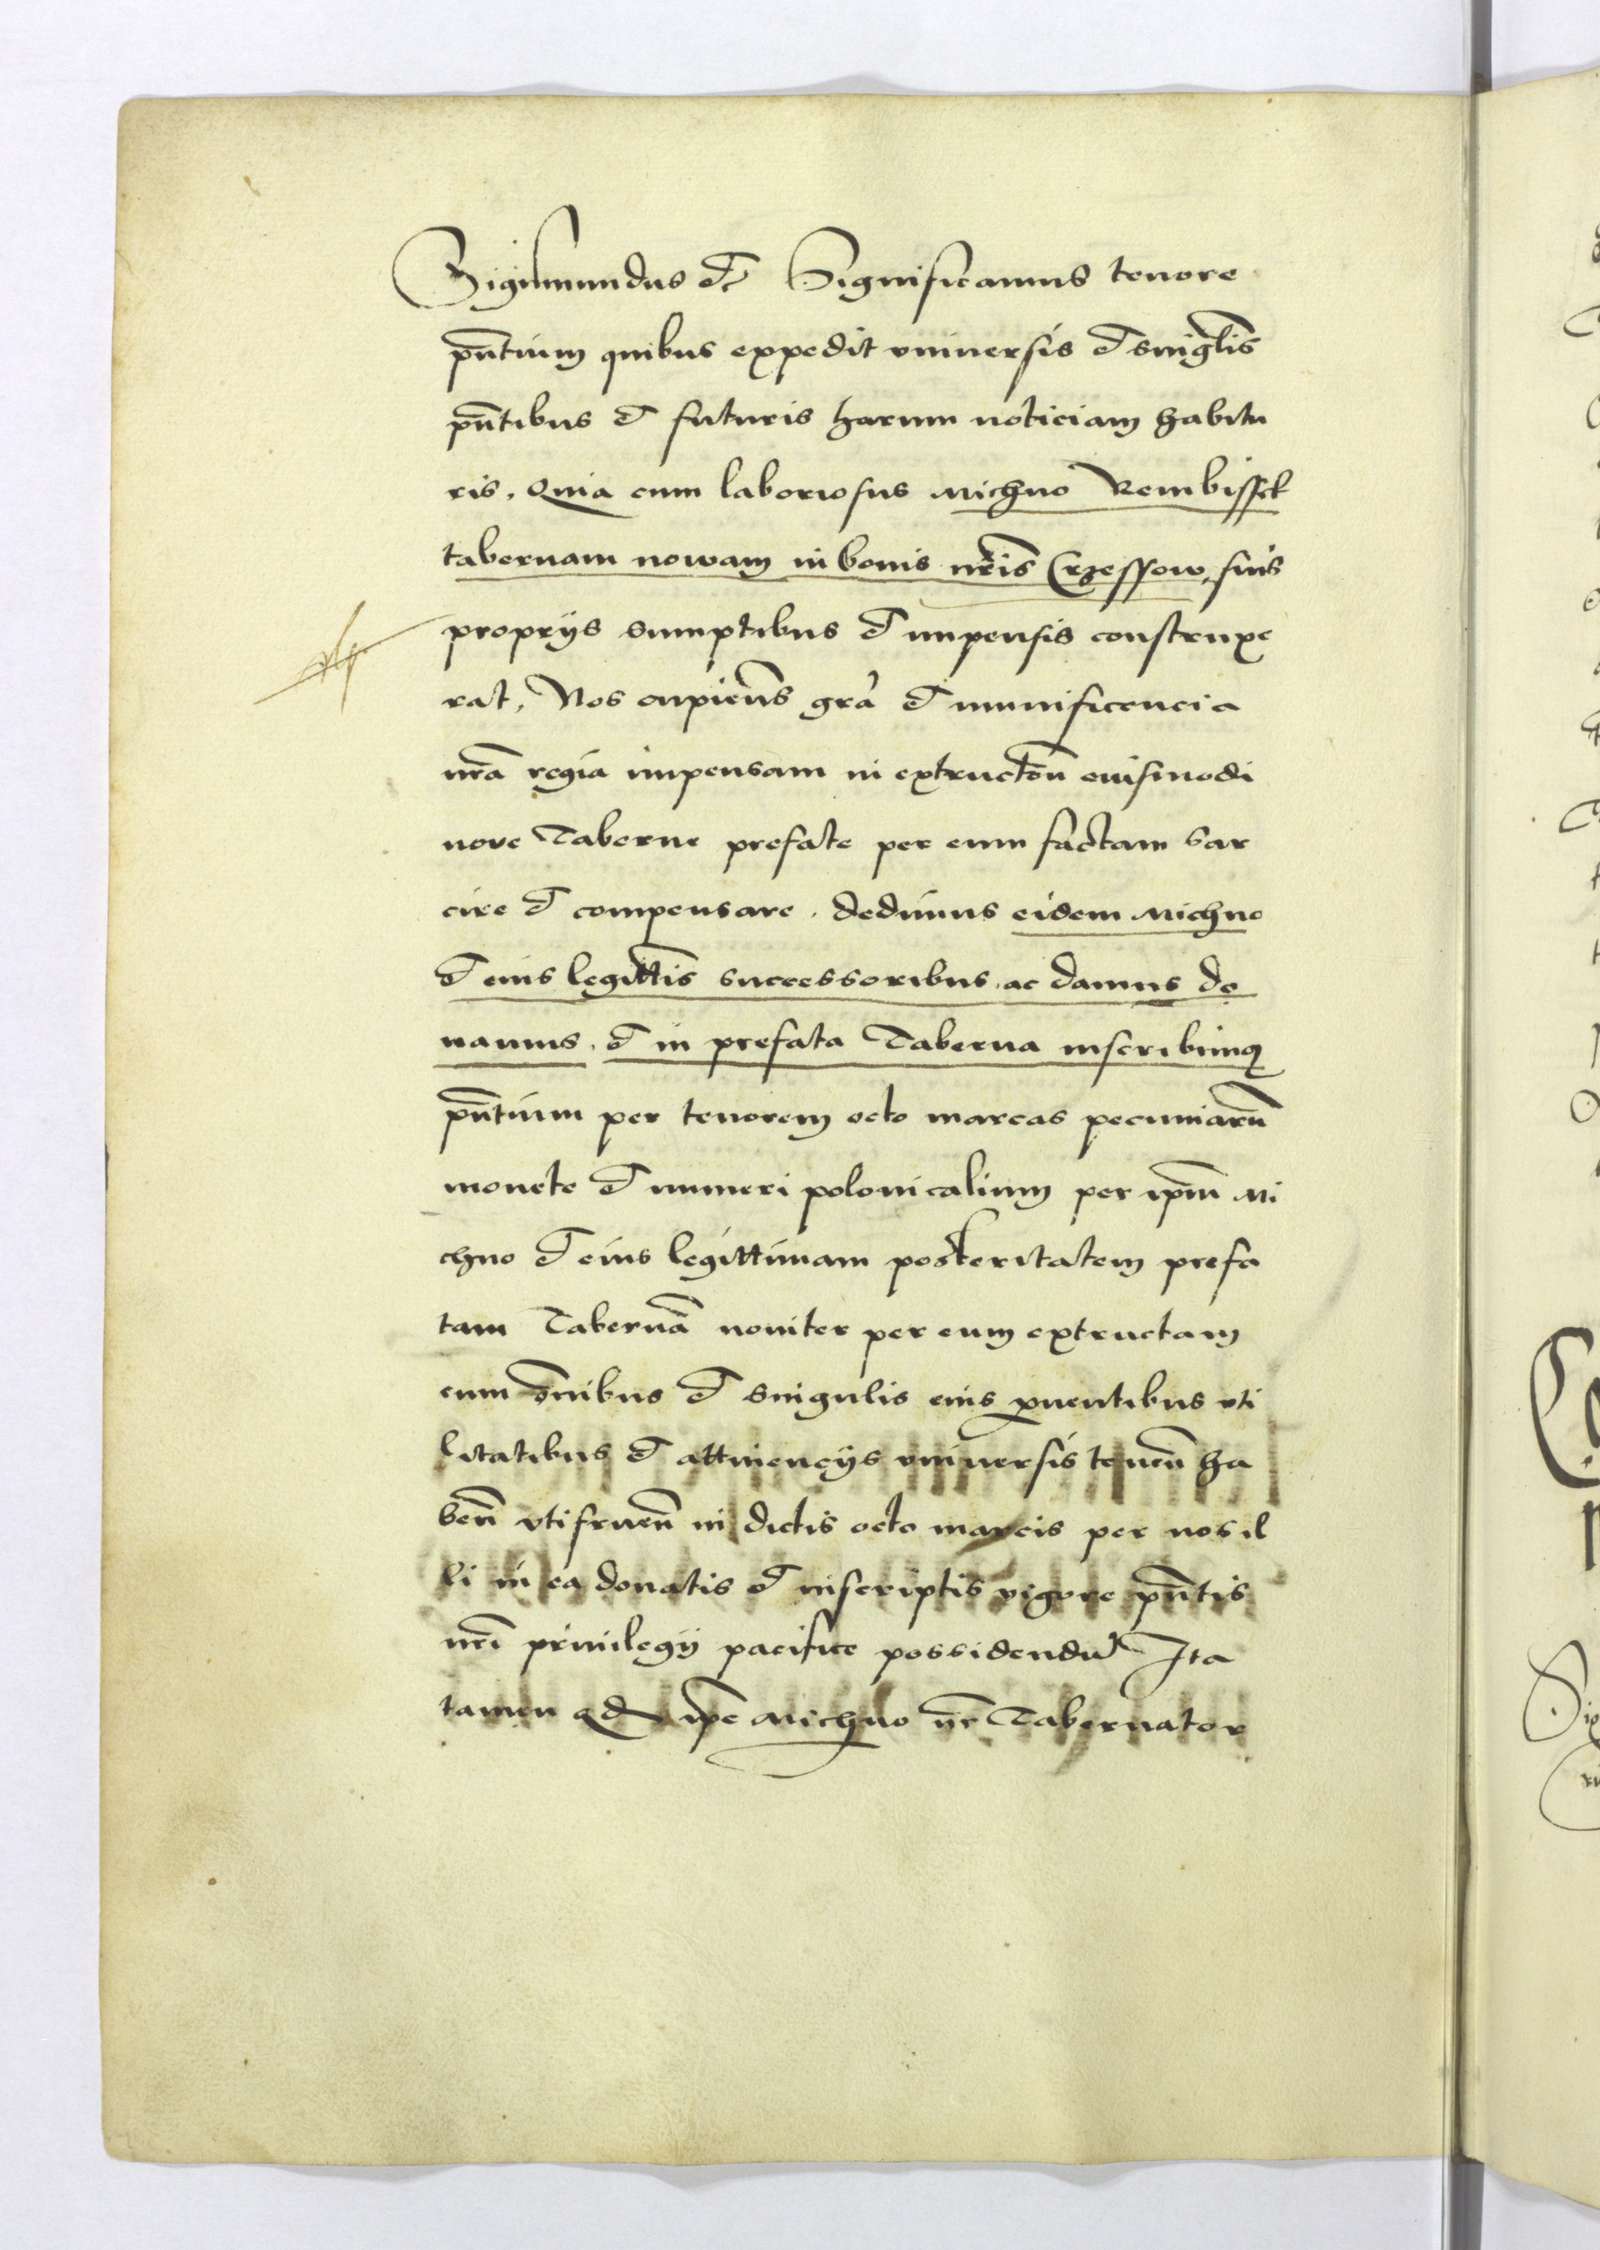 Sigismundus etc Significamus tenore
pn̄tium quibus expedit vniuersis et singlis
pn̄tibus et futuris harum noticiam habitu
ris, Quia cum laboriosus Michno Rembissek
tabernam nowam in bonis nr̄is Crzessow, suis
proprijs sumptibus et impensis construxe
rat, Nos cupien̄s gr̄a et munificencia
nr̄a regia impensam in extructōn euismodi
nove Taberne prefate per eum factam sar
cire et compensare. dedimus eidem Michno
et eius legittīs successoribus. ac damus do
namus. et in prefata Taberna inscribimq
pn̄tium per tenorem octo marcas pecuniarū
monete et numeri polonicalium per ipm̄ Mi
chno et eius legittimam posteritatem prefa
tam Tabernā noviter per eum extructam
cum ōnibus et singulis eius ꝓuentibus vti
litatibus et attinencijs vniuersis tenen̄ ha
ben̄ vtifruen̄ in dictis octo marcis per nos il
li in ea donatis et inscriptis vigore pn̄tis
nr̄i priuilegij pacifice possidendā Ita
tamen qd ip̄e Michno nc̄ Tabernator